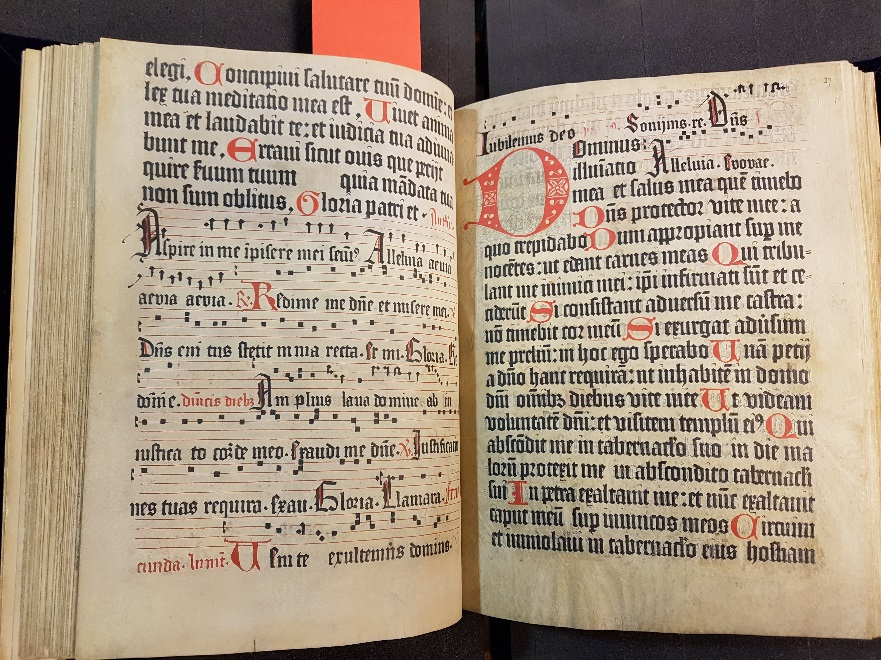 elegi. Concupiui salutare tuũ domĩe: et
lex tua meditatio mea est. Uiuet anima
mea et laudabit te: et iudicia tua adiuua
bunt me. Erraui sicut ouis que perijt
quire ẜuum tuum quia mãdata tua
non sum oblitus. Gloria patri et.
Aspire in me ipisere mei Alleluia aeuia
aeuia aeuia. R. Redime me dñe et misere mei.
Dñs em tus stetit in via recta. et mi. Gloria.
domie. diuicis diebz Am plius laua domine ab in
iustica to corde meo. Exaudi me dñe. Iustificatio
nes tuas requira. Exau. Gloria. Clamara.
cunda. Inuit. Uenite exultemus domino.
Iubilemus deo Dñs
Dominus
illuĩatio Alleluia. Evovae.
mea et salus mea quẽ timebo
Dñs protector vite mee: a
quo trepidabo Dum appropiant sup me
nocẽtes: ut edant carnes meas Qui tribu-
lant me inimici mei: ipi infirmati sũt et ce-
ciderũt Si consistant aduersũ me castra:
nõ timebit cor meũ Si exurgat aduisum
me preliũ: in hoc ego sperabo Unã petij
a dño hanc requirã: ut inhabitẽ in domo
dñi omnibz diebus vite mee Ut videam
voluntatẽ dñi: et visitem templũ eiꝰ Qm
abscõdit me in tabernaclo suo in die ma
lorũ protexit me in abscondito tabernacli
sui In petra exaltauit me: et nũc exaltauit
caput meũ sup inimicos meos Circuiui
et immolaui in tabernaclo eius hostiam